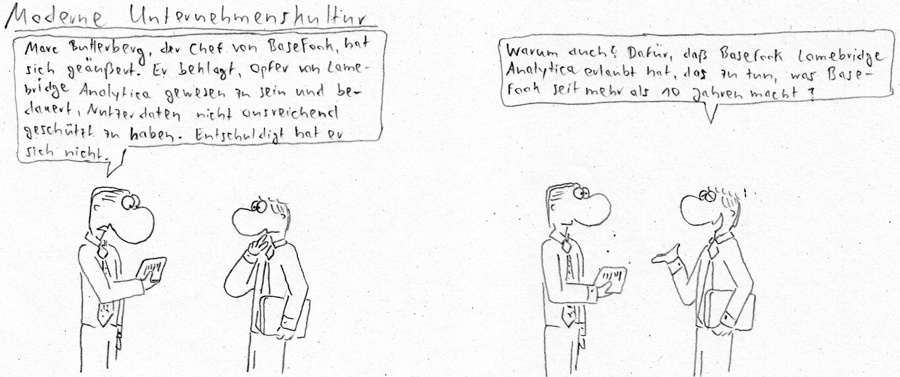 Moderne Unternehmenskultur
Marc Butterberg, der Chef von BaseFook, hat
sich geäußert. Er beklagt, Opfer von Lame-
bridge Analytica gewesen zu sein und be-
dauert, Nutzerdaten nicht ausreichend
geschützt zu haben. Entschuldigt hat er
sich nicht.
Warum auch? Dafür, daß BaseFook Lamebridge
Analytica erlaubt hat, das zu tun, was Base-
Fook seit mehr als 10 Jahren macht?